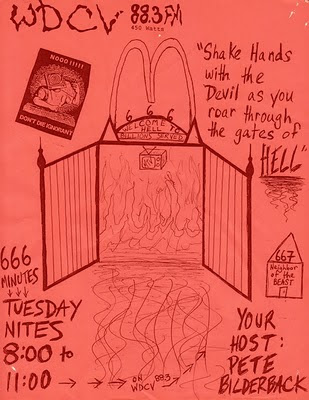 WDCV 88.3 FM
450 Watts
NOOO!!!!!
DON'T DIE IGNORANT
"Shake Hands
with the
Devil as you
roar through
the gates of
HELL"
6 6 6
WELCOME TO
HELL
BILLIONS SERVED
666
MINUTES
TUESDAY
NITES
8:00 to
11:00
ON
WDCV
88.3
667
Neighbor
of the
BEAST
YOUR
HOST:
PETE
BILDERBACK